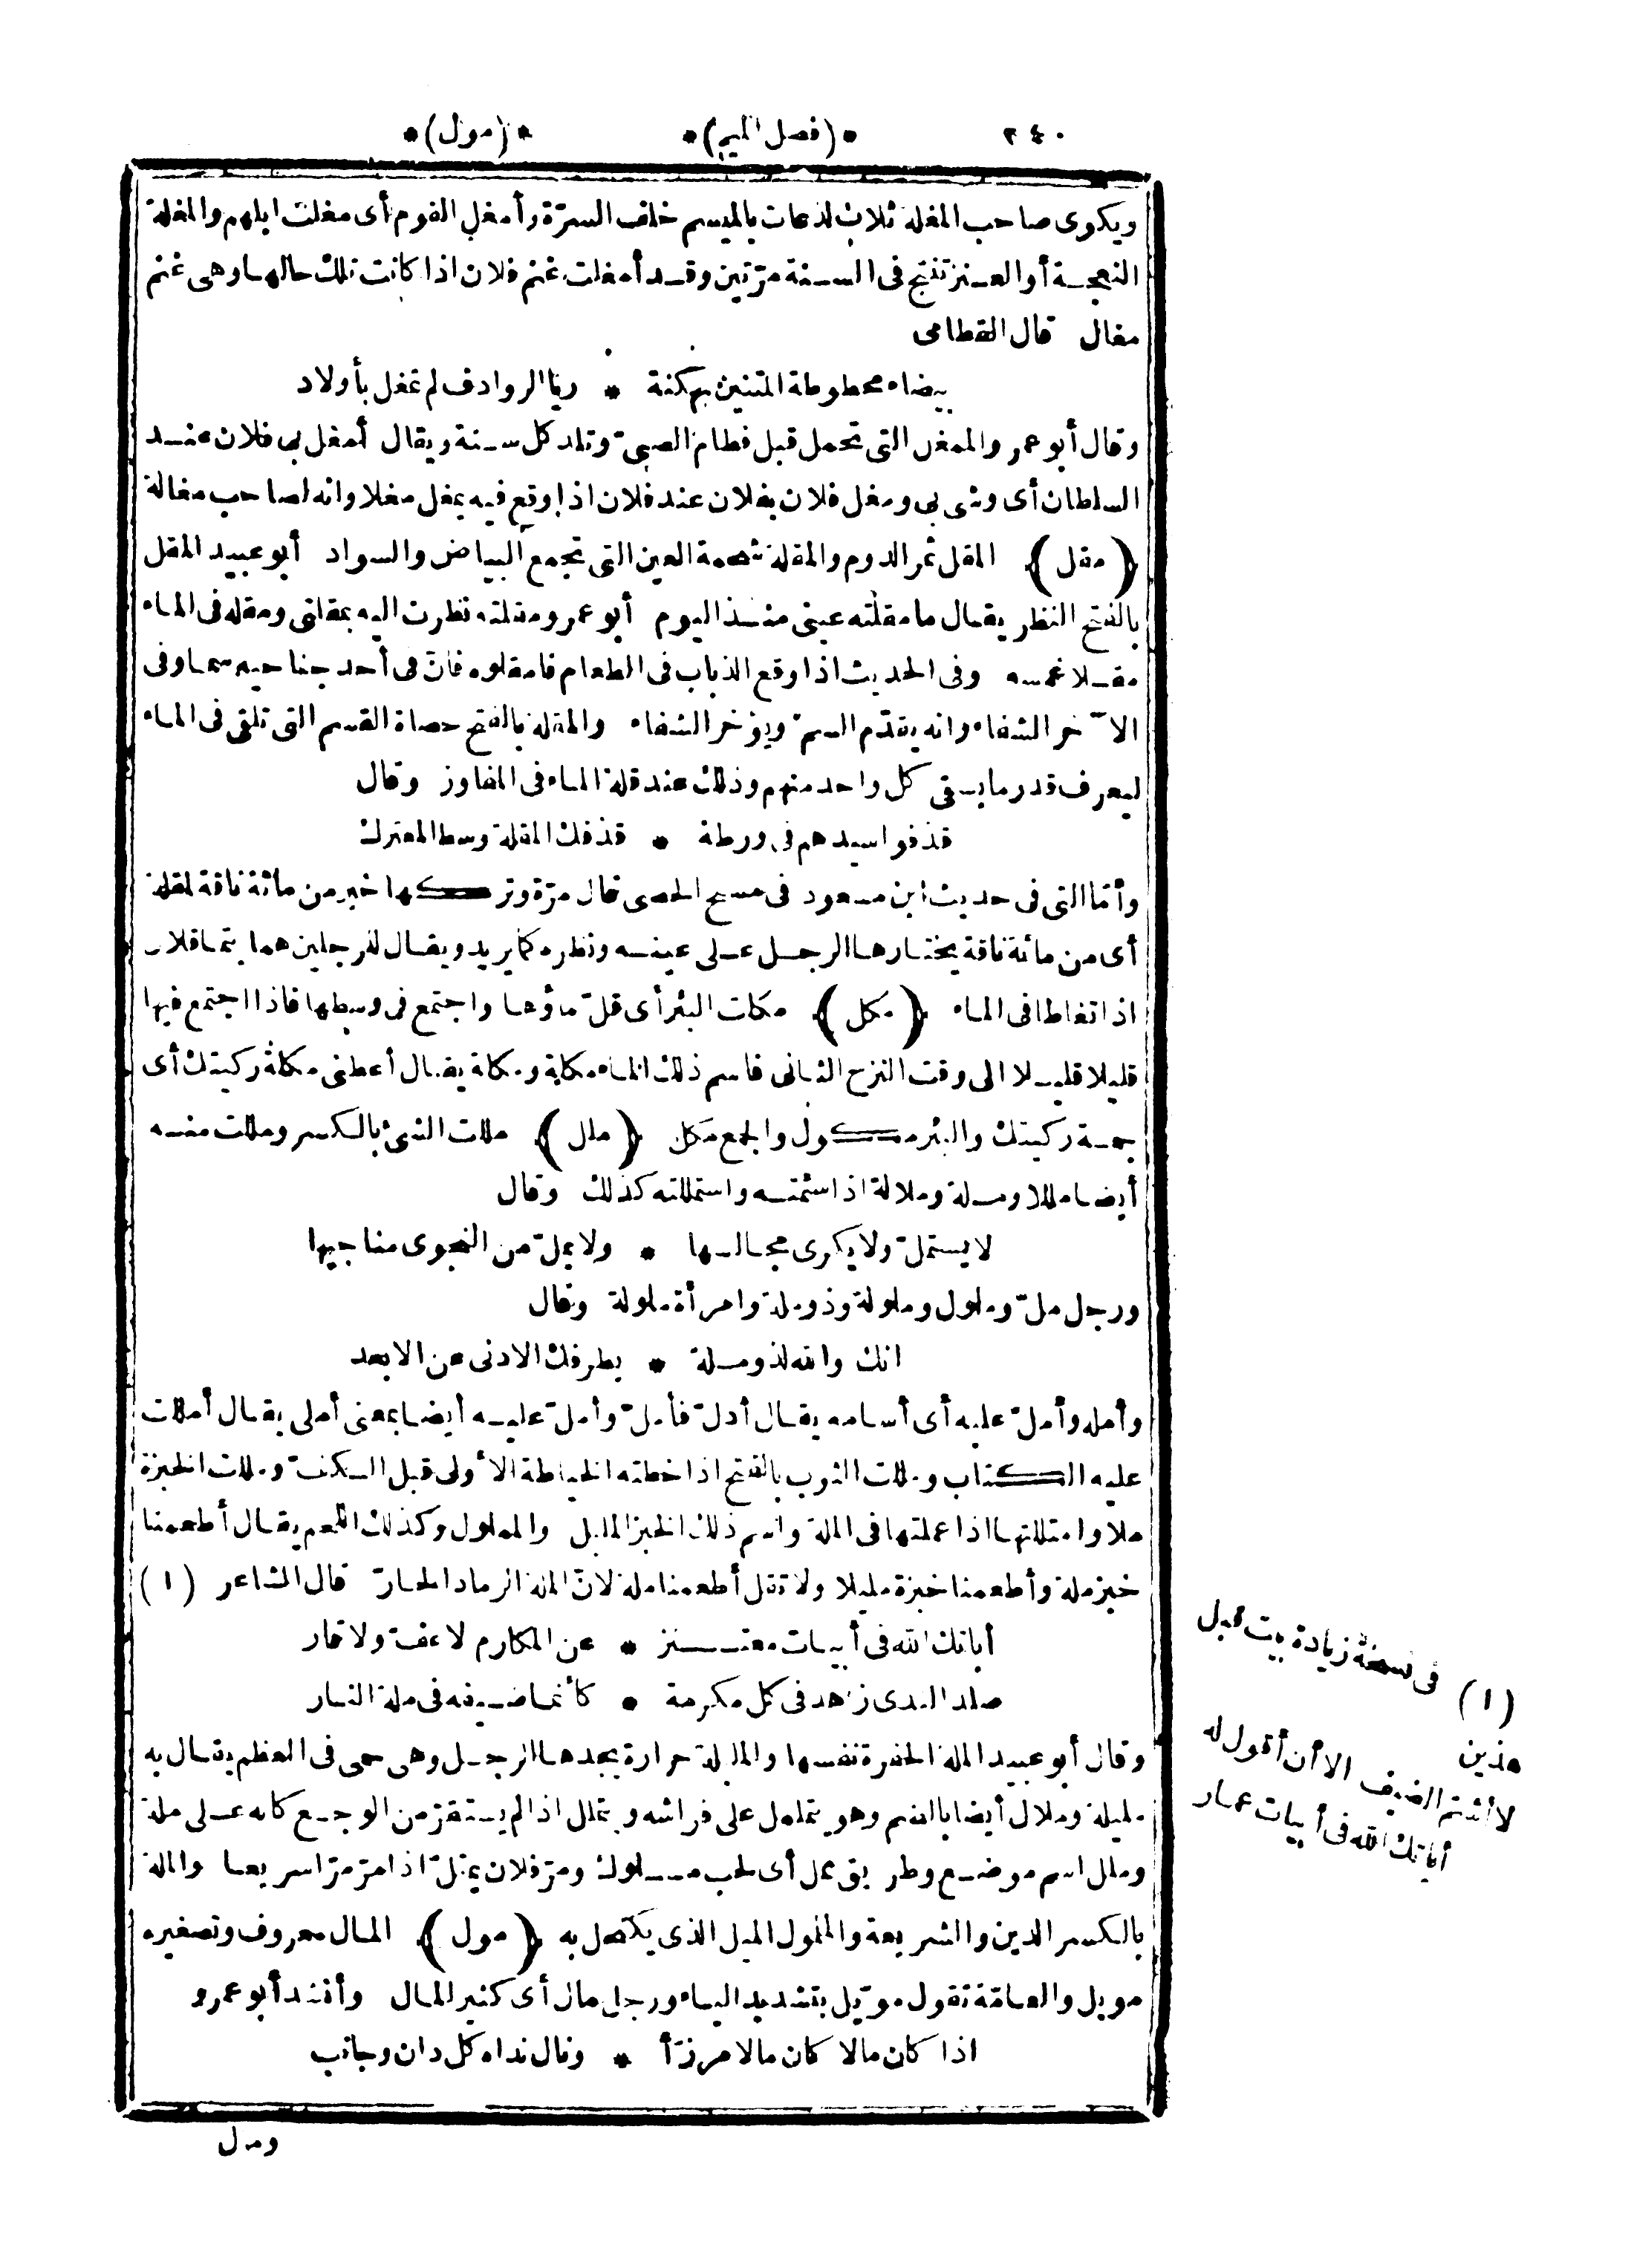 ٢٤٠ *(فصل الميم)* *(مول)*
ويكوى صاحب المغلة ثلاث لذعات بالميسم خلف السرّة وأمغل القوم أى مغلت ابلهم والمغلة
النعجة أو العنز تنتج فى السنة مرّتين وقد أمغلت غنم فلان اذا كانت تلك حالها وهى غنم
مغال قال القطامى
بيضاء محطوطة المتنين بهكنة * ريّا الروادف لم تمغل بأولاد
وقال أبو عمرو الممغل التى تحمل قبل فطام الصبىّ وتلد كل سنة ويقال أمغل بى فلان عند
السلطان أى وشى بى ومغل فلان بفلان عند فلان اذا وقع فيه يمغل مغلا وانه لصاحب مغالة
﴿مقل﴾ المقل ثمر الدوم والمقلة شحمة العين التى تجمع البياض والسواد أبو عبيد المقل
بالفتح النظر يقال ما مقلته عينى منذ اليوم أبو عمرو مقلته نظرت اليه بمقلتى ومقله فى الماء
مقلا غمسه وفى الحديث اذا وقع الذباب فى الطعام فامقلوه فانّ فى أحد جناحيه سما وفى
الآخر الشفاء وانه يقدّم السمّ ويؤخر الشفاء والمقلة بالفتح حصاة القسم التى تلقى فى الماء
ليعرف قدر ما يسقى كل واحد منهم وذلك عند قلة الماء فى المفاوز وقال
قذفوا سيدهم فى ورطة * قذفك المقلة وسط المعترك
وأمّا التى فى حديث ابن مسعود فى مسح الحصى قال مرّة وتركها خير من مائة ناقة لمقلة
أى من مائة ناقة يختارها الرجل على عينه ونظره كما يريد ويقال للرجلين هما يتماقلان
اذا تغاطا فى الماء ﴿مكل﴾ مكلت البئر أى قلّ ماؤها واجتمع فى وسطها فاذا اجتمع فيها
قليلا قليلا الى وقت النزح الثانى فاسم ذلك الماء مكلة ومكلة يقال أعطنى مكلة ركيتك أى
جمة ركيتك والبئر مكول والجمع مكل ﴿ملل﴾ مللت الشئ بالكسر ومللت منه
أيضا مللا وملة وملالة اذا سئمته واستمللته كذلك وقال
لا يستملّ ولا يكرى مجالسها * ولا يملّ من النجوى مناجيها
ورجل ملّ وملول وملولة وذو ملة وامرأة ملولة وقال
انك والله لذو ملة * يطرفك الادنى عن الابعد
وأمله وأملّ عليه أى أسأمه يقال أدلّ فأملّ وأملّ عليه أيضا بمعنى أملى يقال أمللت
عليه الكتاب ومللت الثوب بالفتح اذا خطته الخياطة الأولى قبل الكفّ ومللت الخبزة
ملا وامتللتها اذا عملتها فى الملة واسم ذلك الخبز المليل والمملول وكذلك اللحم يقال أطعمنا
خبز ملة وأطعمنا خبزة مليلا ولا تقل أطعمنا ملة لانّ الملة الرماد الحارّ قال الشاعر (١)
أباتك الله فى أبيات معتنز * عن المكارم لا عفّ ولا قار
صلد الندى زاهد فى كل مكرمة * كأنما ضيفه فى ملة النار
وقال أبو عبيد الملة الحفرة نفسها والمليلة حرارة يجدها الرجل وهى حمى فى العظم يقال به
مليلة وملال أيضا بالضم وهو يتململ على فراشه ويتملل اذا لم يستقرّ من الوجع كانه على ملة
وملل اسم موضع وطريق ممل أى لحب مسلوك ومرّ فلان يمتلّ اذا مرّ مرّا سريعا والملة
بالكسر الدين والشريعة والملمول الميل الذى يكتحل به ﴿مول﴾ المال معروف وتصغيره
مويل والعامّة تقول مويّل بتشديد الياء ورجل مال أى كثير المال وأنشد أبو عمرو
اذا كان مالا كان مالا مرزّأ * ونال نداه كل دان وجانب
ومل
(١) فى نسخة زيادة بيت قبل
هذين
لا أشتم الضيف الا أن أقول له
أباتك الله فى أبيات عمار